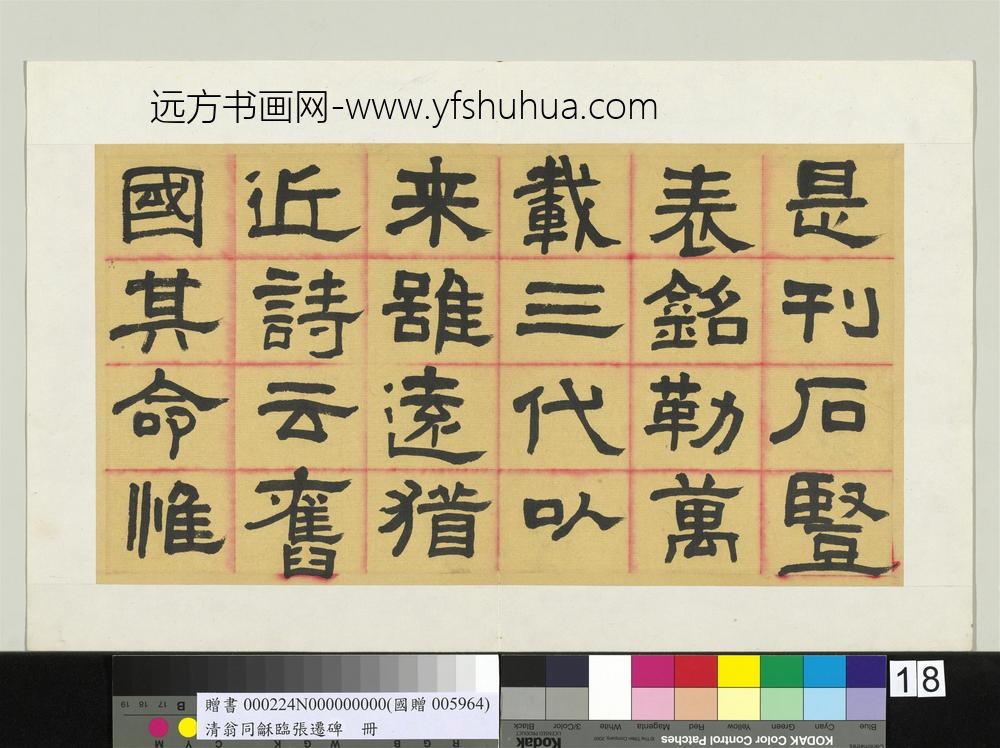 远方书画网-www.yfshuhua.com
是刊石豎
表銘勒萬
載三代以
来雖遠猶
近詩云舊
國其命惟
18
贈書 000224N000000000(國贈 005964)
清翁同龢臨張遷碑 冊
19 18 17 16 B
M Y C Y G W G K C R
Black 3/Color White Magenta Red Yellow Green Cyan Blue
Kodak
LICENSED PRODUCT
KODAK Color Control Patches